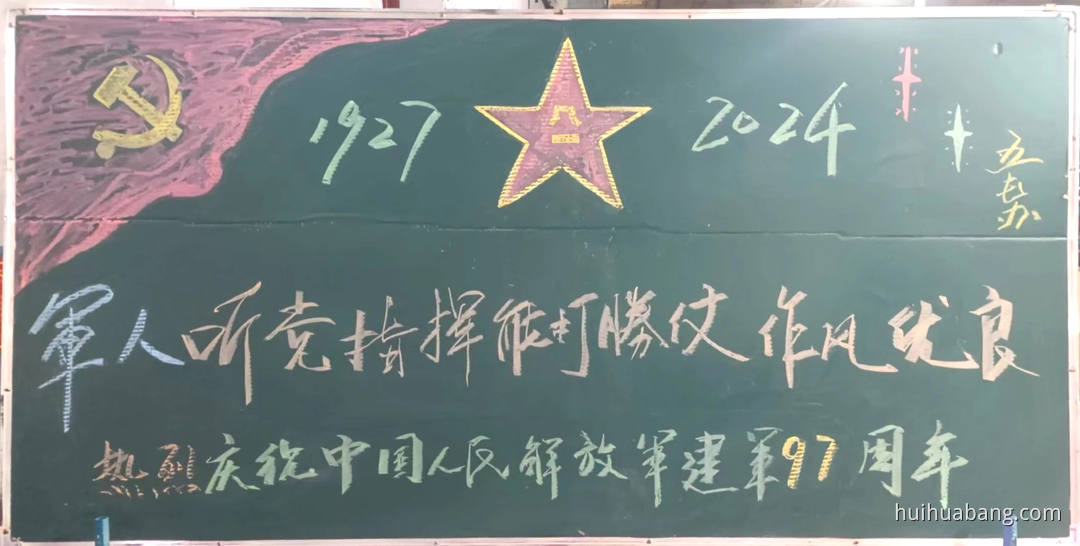 1927
八一
2024
五七办
軍人听党指揮能打勝仗作风优良
热烈庆祝中国人民解放军建军97周年
huihuabang.com